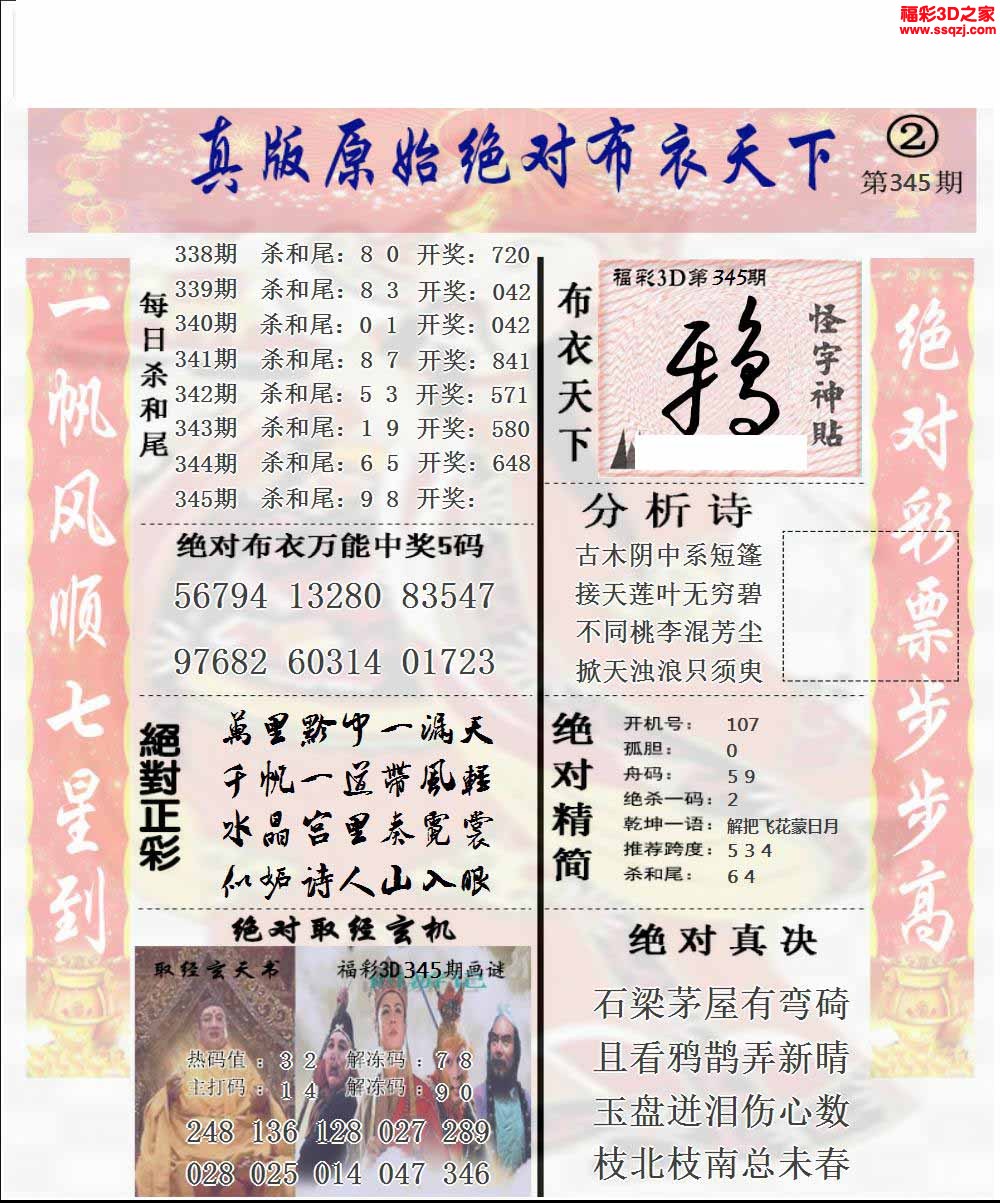 福彩3D之家
www.ssqzj.com
真版原始绝对布衣天下
②
第345期
一帆风顺七星到
每日杀和尾
338期 杀和尾：8 0 开奖：720
339期 杀和尾：8 3 开奖：042
340期 杀和尾：0 1 开奖：042
341期 杀和尾：8 7 开奖：841
342期 杀和尾：5 3 开奖：571
343期 杀和尾：1 9 开奖：580
344期 杀和尾：6 5 开奖：648
345期 杀和尾：9 8 开奖：
绝对布衣万能中奖5码
56794 13280 83547
97682 60314 01723
絕對正彩
萬里黔中一漏天
千帆一道带風輕
水晶宫里奏霓裳
似妬诗人山入眼
绝对取经玄机
取经玄天书
福彩3D345期画谜
热码值：3 2 解冻码：7 8
主打码：1 4 解冻码：9 0
248 136 128 027 289
028 025 014 047 346
布衣天下
福彩3D第345期
鸦
怪字神貼
分析诗
古木阴中系短篷
接天莲叶无穷碧
不同桃李混芳尘
掀天浊浪只须臾
绝对精简
开机号：107
孤胆：0
舟码：5 9
绝杀一码：2
乾坤一语：解把飞花蒙日月
推荐跨度：5 3 4
杀和尾：6 4
绝对真决
石梁茅屋有弯碕
且看鸦鹊弄新晴
玉盘迸泪伤心数
枝北枝南总未春
绝对彩票步步高